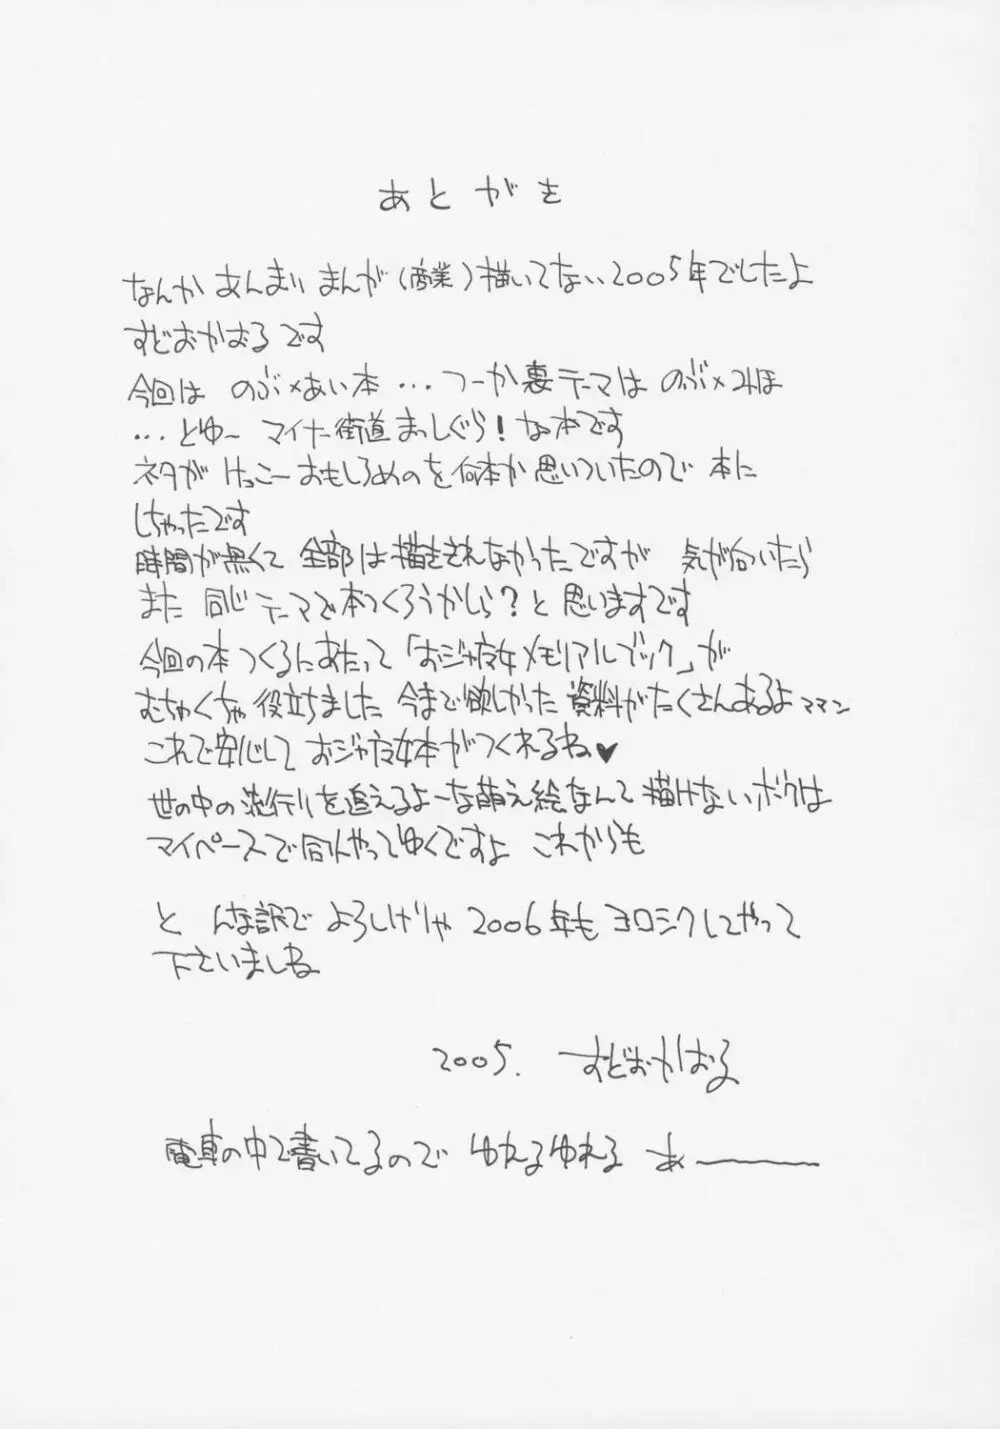 あとがき
なんか あんまり まんが(商業)描いてない2005年でしたよ
すどおかおるです
今回は のぶ×あい本 … つーか裏テーマは のぶ×みほ
… とゆー マイナー街道まっしぐら！な本です
ネタが けっこーおもしろめのを何本か思いついたので 本に
しちゃったです
時間が無くて 全部は描ききれなかったですが 気が向いたら
また 同じテーマで本つくろうかしら？と 思いますです
今回の本 つくるにあたって「おジャ魔女メモリアルブック」が
むちゃくちゃ役立ちました 今まで欲しかった 資料がたくさんあるよママン
これで安心して おジャ魔女本がつくれるね♥
世の中の流行りを追えるよーな萌え絵なんて描けないボクは
マイペースで同人やってゆくですよ これからも
と んな訳で よろしければ 2006年も ヨロシクしてやって
下さいましね
2005. すどおかおる
電車の中で書いてるので ゆれるゆれる あ〜